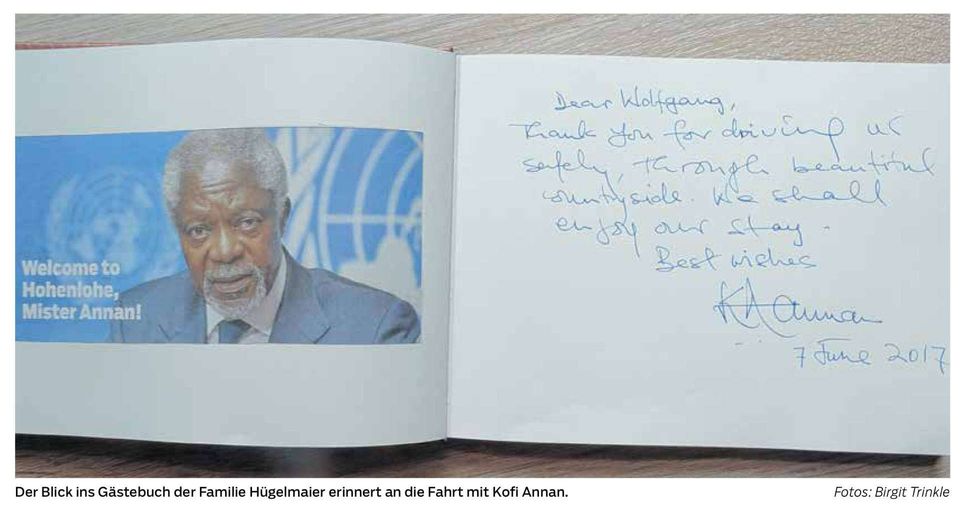 Welcome to
Hohenlohe,
Mister Annan!
Dear Wolfgang,
Thank you for driving us
safely, through beautiful
countryside. We shall
enjoy our stay.
Best wishes
KAAnnan
7 June 2017
Der Blick ins Gästebuch der Familie Hügelmaier erinnert an die Fahrt mit Kofi Annan.
Fotos: Birgit Trinkle